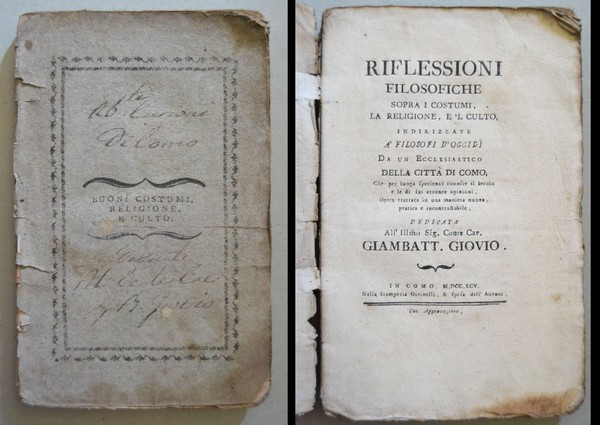 Ab.te
Di Como
BUONI COSTUMI,
RELIGIONE,
E CULTO.
RIFLESSIONI
FILOSOFICHE
SOPRA I COSTUMI,
LA RELIGIONE, E 'L CULTO,
INDIRIZZATE
A' FILOSOFI D'OGGIDÌ
DA UN ECCLESIASTICO
DELLA CITTÀ DI COMO,
Che per lunga sperienza conosce il secolo
e le di lui erronee opinioni,
Opera trattata in una maniera nuova,
pratica e incontrastabile.
DEDICATA
All' Illmo Sig. Conte Cav.
GIAMBATT. GIOVIO.
IN COMO, M.DCC.XCV.
Nella Stamperia Ostinelli, A spese dell' Autore.
Con Approvazione.